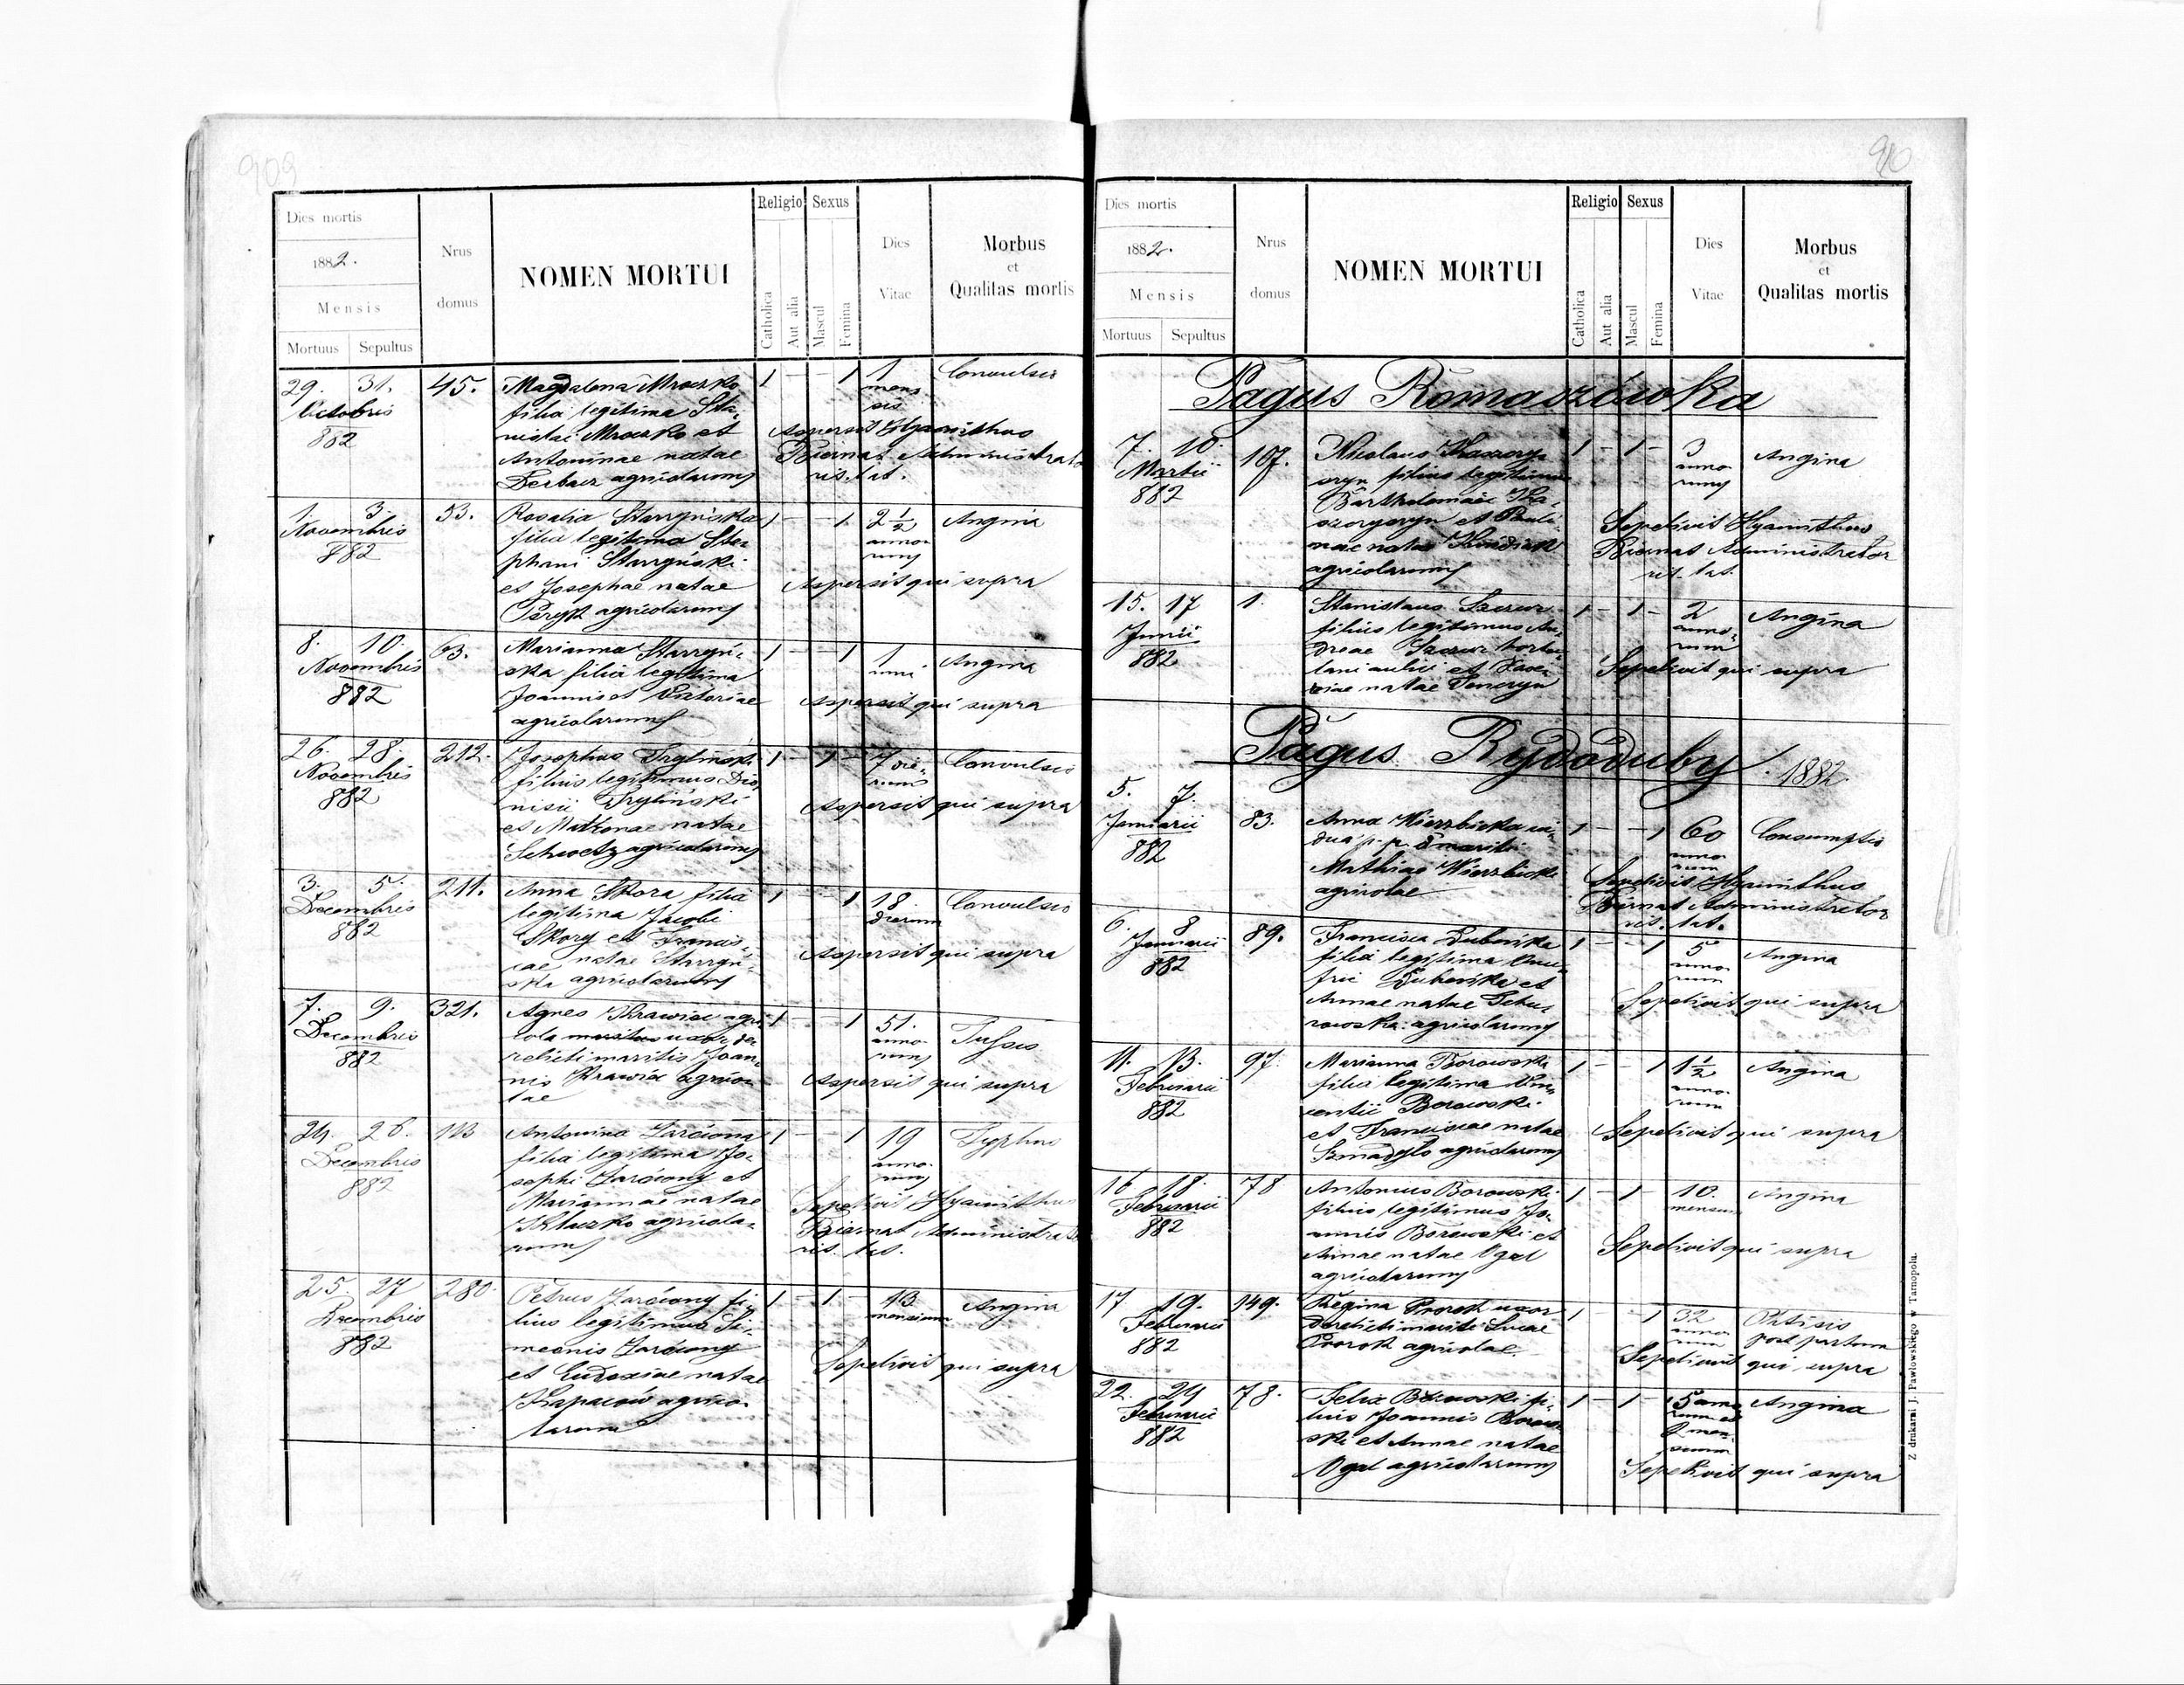 909
Dies mortis
1882.
Mensis
Mortuus Sepultus
Nrus domus
NOMEN MORTUI
Religio
Catholica
Aut alia
Sexus
Mascul
Femina
Dies Vitae
Morbus
et
Qualitas mortis
29. 31. 45. Magdalena Mroczko 1 — — 1 1 Convulsio
Octobris filia legitima Sta- men
882 nislai Mroczko et sis
Antoninae natae Aspersit Hyacinthus
agricolarum Biernat Administrator
rit. lat.
1. 3. 53. Rosalia Starzyńska 1 — — 1 2 1/2 Angina
Novembris filia legitima Ste- anno-
882 phani Starzyński rum
et Josephae natae Aspersit qui supra
agricolarum
8. 10. 63. Marianna Starzyń- 1 — — 1 1 Angina
Novembris ska filia legitima anni
882 Joannis et Victoriae Aspersit qui supra
agricolarum
26. 28. 212. Josephus 1 — 1 — 7 die- Convulsio
Novembris filius legitimus Dio- rum
882 nisii Aspersit qui supra
et natae
agricolarum
3. 5. 211. Anna Skora filia 1 — — 1 18 Convulsio
Decembris legitima Jacobi dierum
882 Skory et Francis-
cae natae Starzyń- Aspersit qui supra
ska agricolarum
7. 9. 321. Agnes Krawiec agri- 1 — — 1 51. Tussis
Decembris cola uxor de- anno-
882 relicti mariti Joan- rum
nis Krawiec agrico- Aspersit qui supra
lae
24. 26. 113 Antonina 1 — — 1 19 Typhus
Decembris filia legitima Jo- anno-
882 sephi et rum
Mariannae natae Sepelivit Hyacinthus
agricola- Biernat Administrator
rum rit. lat.
25. 27 280. Petrus fi- 1 — 1 — 13 Angina
Decembris lius legitimus Si- mensium
882 meonis
et Eudoxiae natae Sepelivit qui supra
agrico-
larum
910
Dies mortis
1882.
Mensis
Mortuus Sepultus
Nrus domus
NOMEN MORTUI
Religio
Catholica
Aut alia
Sexus
Mascul
Femina
Dies Vitae
Morbus
et
Qualitas mortis
Pagus Romaszówka
7. 10. 107. Nicolaus 1 — 1 — 3 Angina
Martii filius legitimus anno-
882 Bartholomaei rum
et Pauli- Sepelivit Hyacinthus
nae natae Biernat Administrator
agricolarum rit. lat.
15. 17 1. Stanislaus 1 — 1 — 2 Angina
Junii filius legitimus An- anno-
882 dreae hortu- rum
lani aulici et Xave- Sepelivit qui supra
riae natae
Pagus Rydoduby 1882.
5. 7. 83. Anna Wierzbicka vi- 1 — — 1 60 Consumptio
Januarii dua p. p. mariti anno-
882 Mathiae Wierzbicki rum
agricolae Sepelivit Hyacinthus
Biernat Administrator
rit. lat.
6. 8 89. Francisca 1 — — 1 5 Angina
Januarii filia legitima Onu- anno-
882 frii et rum
Annae natae Sepelivit qui supra
agricolarum
11. 13. 97. Marianna Borowska 1 — — 1 1 1/2 Angina
Februarii filia legitima Vin- anno-
882 centii Borowski rum
et Franciscae natae Sepelivit qui supra
Szmadyło agricolarum
16 18. 78 Antonius Borowski 1 — 1 — 10. Angina
Februarii filius legitimus Jo- mensium
882 annis Borowski et
Annae natae Ogal Sepelivit qui supra
agricolarum
17 19. 149. Regina Prorok uxor 1 — — 1 32 Phtisis
Februarii derelicti mariti Lucae anno- post partum
882 Prorok agricolae. rum
Sepelivit qui supra
22. 24 78. Felix Borowski fi- 1 — 1 — 5 anno- Angina
Februarii lius Joannis Borow- rum et
882 ski et Annae natae men-
Ogal agricolarum sium
Sepelivit qui supra
Z drukarni J. Pawłowskiego w Tarnopolu.